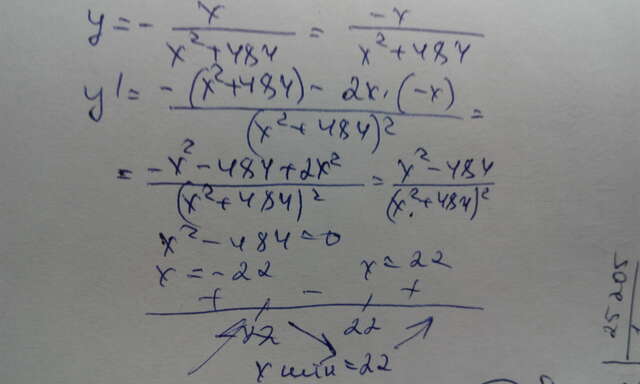 y = - x / (x² + 484) = -x / (x² + 484)
y' = (-(x² + 484) - 2x · (-x)) / (x² + 484)² =
= (-x² - 484 + 2x²) / (x² + 484)² = (x² - 484) / (x² + 484)²
x² - 484 = 0
x = -22 x = 22
+ - +
-22 22
x мин = 22
25205